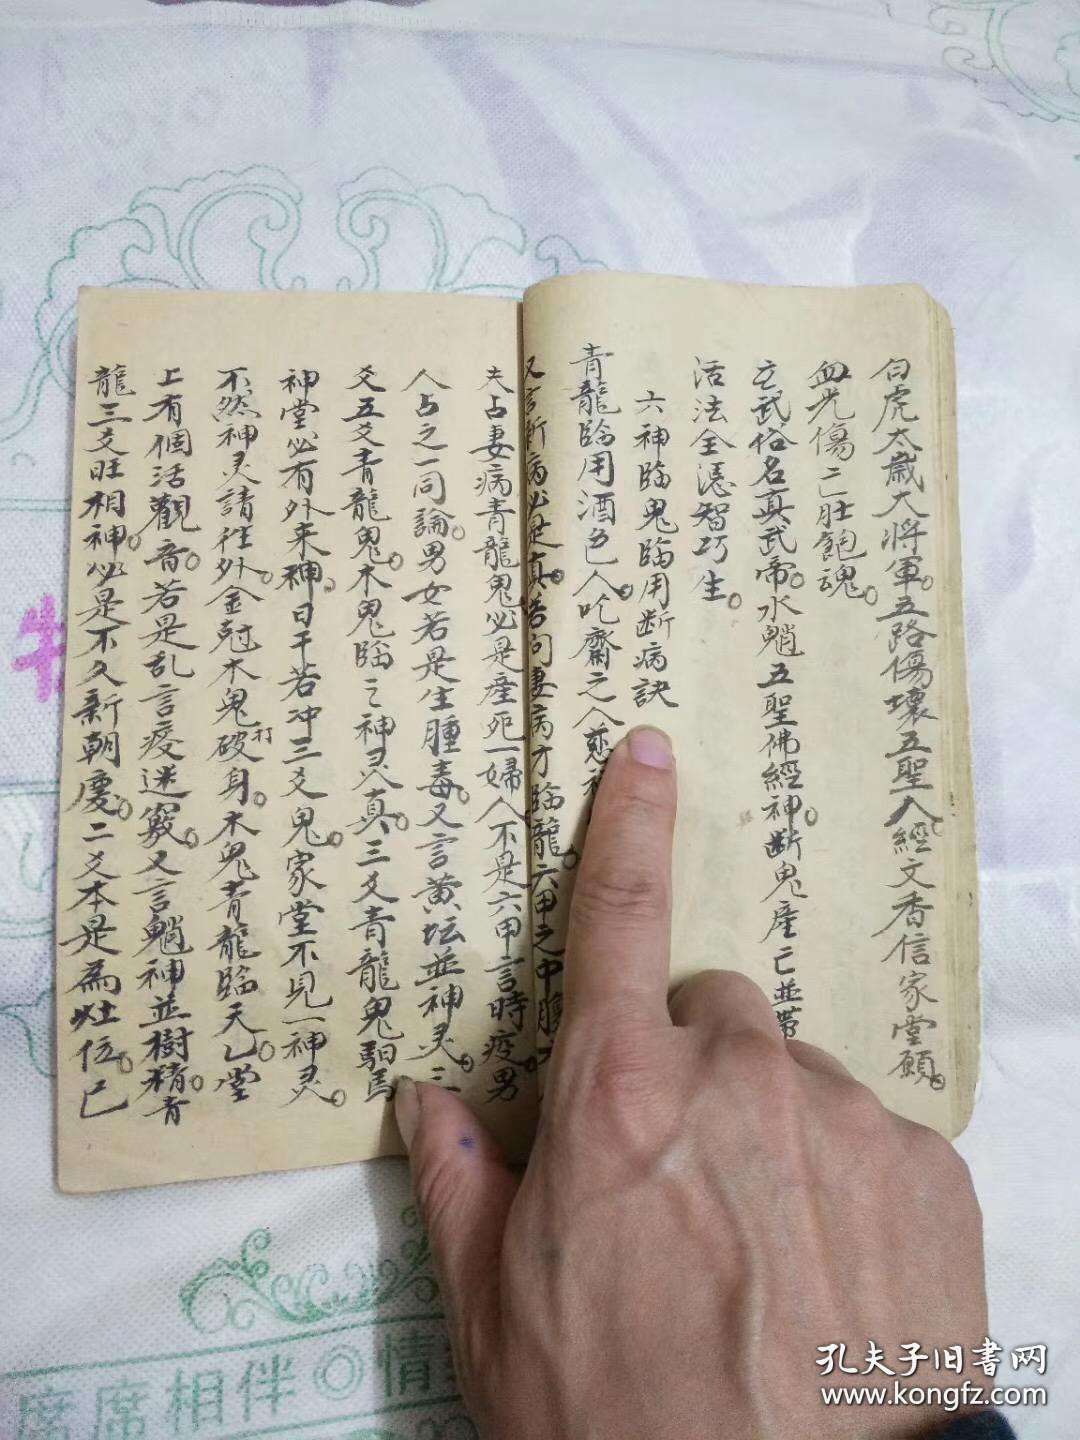 白虎太歲大將軍。五路傷壞五聖入。經文香信家堂願。
血光傷亡肚飽魂。
玄武俗名真武帝。水魈五聖佛經神。斷鬼産亡並帶
活法全憑智巧生。
六神臨鬼臨用斷病訣
青龍臨用酒色人。吃齋之人慈
又言斷病必是真。若问妻病才臨龍。六甲之中腹
夫占妻病青龍鬼。必是産死一婦人。不是六甲言時疫。男
人占之一同論。男女若是生腫毒。又言黄坛並神灵。三
爻五爻青龍鬼。木鬼臨之神灵真。三爻青龍鬼駟馬
神堂必有外来神。日干若冲三爻鬼。家堂不見一神灵。
不然神灵請往外。金尅木鬼打破身。木鬼青龍臨天乙。堂
上有個活觀音。若是乱言疫迷竅。又言魈神並樹精。青
龍三爻旺相神。必是不久新朝慶。二爻本是為灶伍。已
孔夫子旧書网
www.kongfz.com
席席相伴◎情